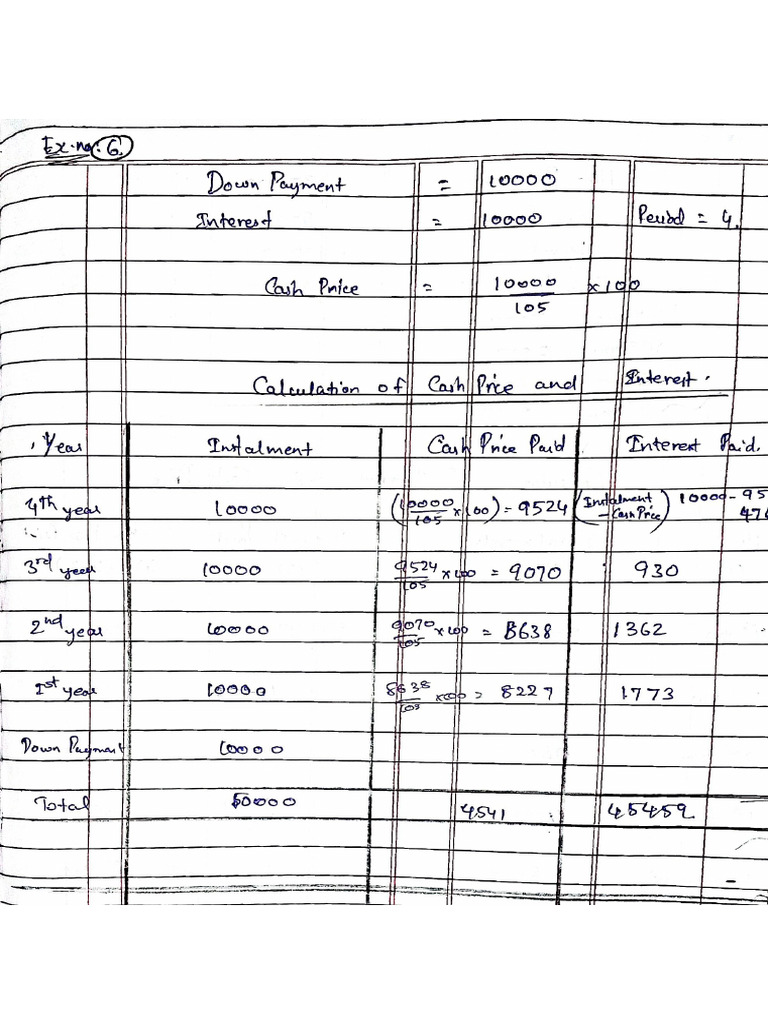 Ex.no: 6.
Down Payment = 10000
Interest = 10000 Period = 4.
Cash Price = 10000/105 × 100
Calculation of Cash Price and Interest.
Year Instalment Cash Price Paid Interest Paid.
4th year 10000 (10000/105 × 100) = 9524 (Instalment - Cash Price) 10000 - 95
476
3rd year 10000 9524/105 × 100 = 9070 930
2nd year 10000 9070/105 × 100 = 8638 1362
1st year 10000 8638/105 × 100 = 8227 1773
Down Payment 10000
Total 50000 4541 45459